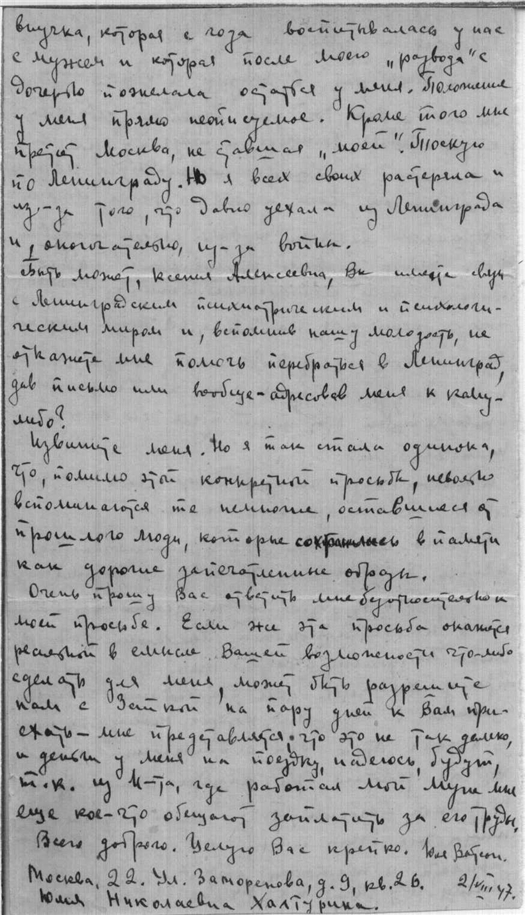 внучка, которая с года воспитывалась у нас
с мужем и которая после моего „развода" с
дочерью пожелала остаться у меня. Положение
у меня прямо неописуемое. Кроме того мне
претит Москва, не ставшая „моей". Тоскую
по Ленинграду. Но я всех своих растеряла и
из-за того, что давно уехала из Ленинграда
и, окончательно, из-за войны.
Быть может, Ксения Алексеевна, Вы имеете связи
с Ленинградским психиатрическим и психологи-
ческим миром и, вспомнив нашу молодость, не
откажете мне помочь перебраться в Ленинград,
дав письмо или вообще - адресовав меня к кому-
либо?
Извините меня. Но я так стала одинока,
что, помимо этой конкретной просьбы, невольно
вспоминаются те немногие, оставшиеся от
прошлого люди, которые сохранились в памяти
как дорогие запечатленные образы.
Очень прошу Вас ответить мне безотносительно к
моей просьбе. Если же эта просьба окажется
реальной в смысле Вашей возможности что-либо
сделать для меня, может быть разрешите
нам с на пару дней к Вам при-
ехать - мне представляется, что это не так далеко,
и деньги у меня на поездку, надеюсь, будут,
т.к. из И-та, где работал мой муж мне
еще кое-что обещают заплатить за его труды.
Всего доброго. Целую Вас крепко. Юля
Москва, 22. Ул. Заморенова, д. 9, кв. 26. 2/VIII 47.
Юлия Николаевна Халтурина.